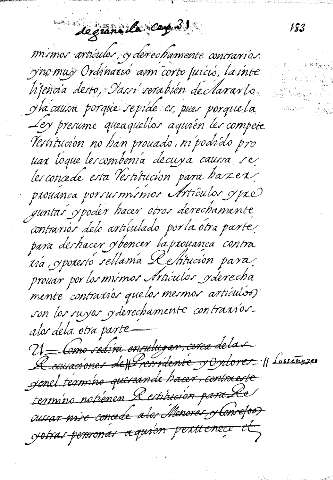 de granada Cap. 21
153
mismos articulos, y derechamente contrarios
y no muy Ordinario a mi corto Juicio, la inte
lijencia desto, y assi sera bien declararlo
y la causa porque se pide es, pues por que la
Ley presume que aquellos a quien les compete
Restitución no han provado, ni podido pro
var lo que les combenia de cuya caussa se
les concede esta Restitucion para hazer
provanca por sus mismos Articulos y pre
guntas, y poder hacer otros derechamante
contrarios de lo articulado por la otra parte,
para deshacer y bencer la provanca contra
ria, y por esso se llama Restitución para
provar por los mismos Articulos y derecha
mente contrarios que los mesmos articulos
son los suyos y derechamente contrarios
a los de la otra parte
Como se dira en su lugar, cerca de las
Recusaciones de Presidente y Oydores
y en el termino que se an de hacer, contra este
termino no tienen Restitucion para Re
cussar ni se concede a los Menores, y Consejos
y otras personas a quien pertenece el